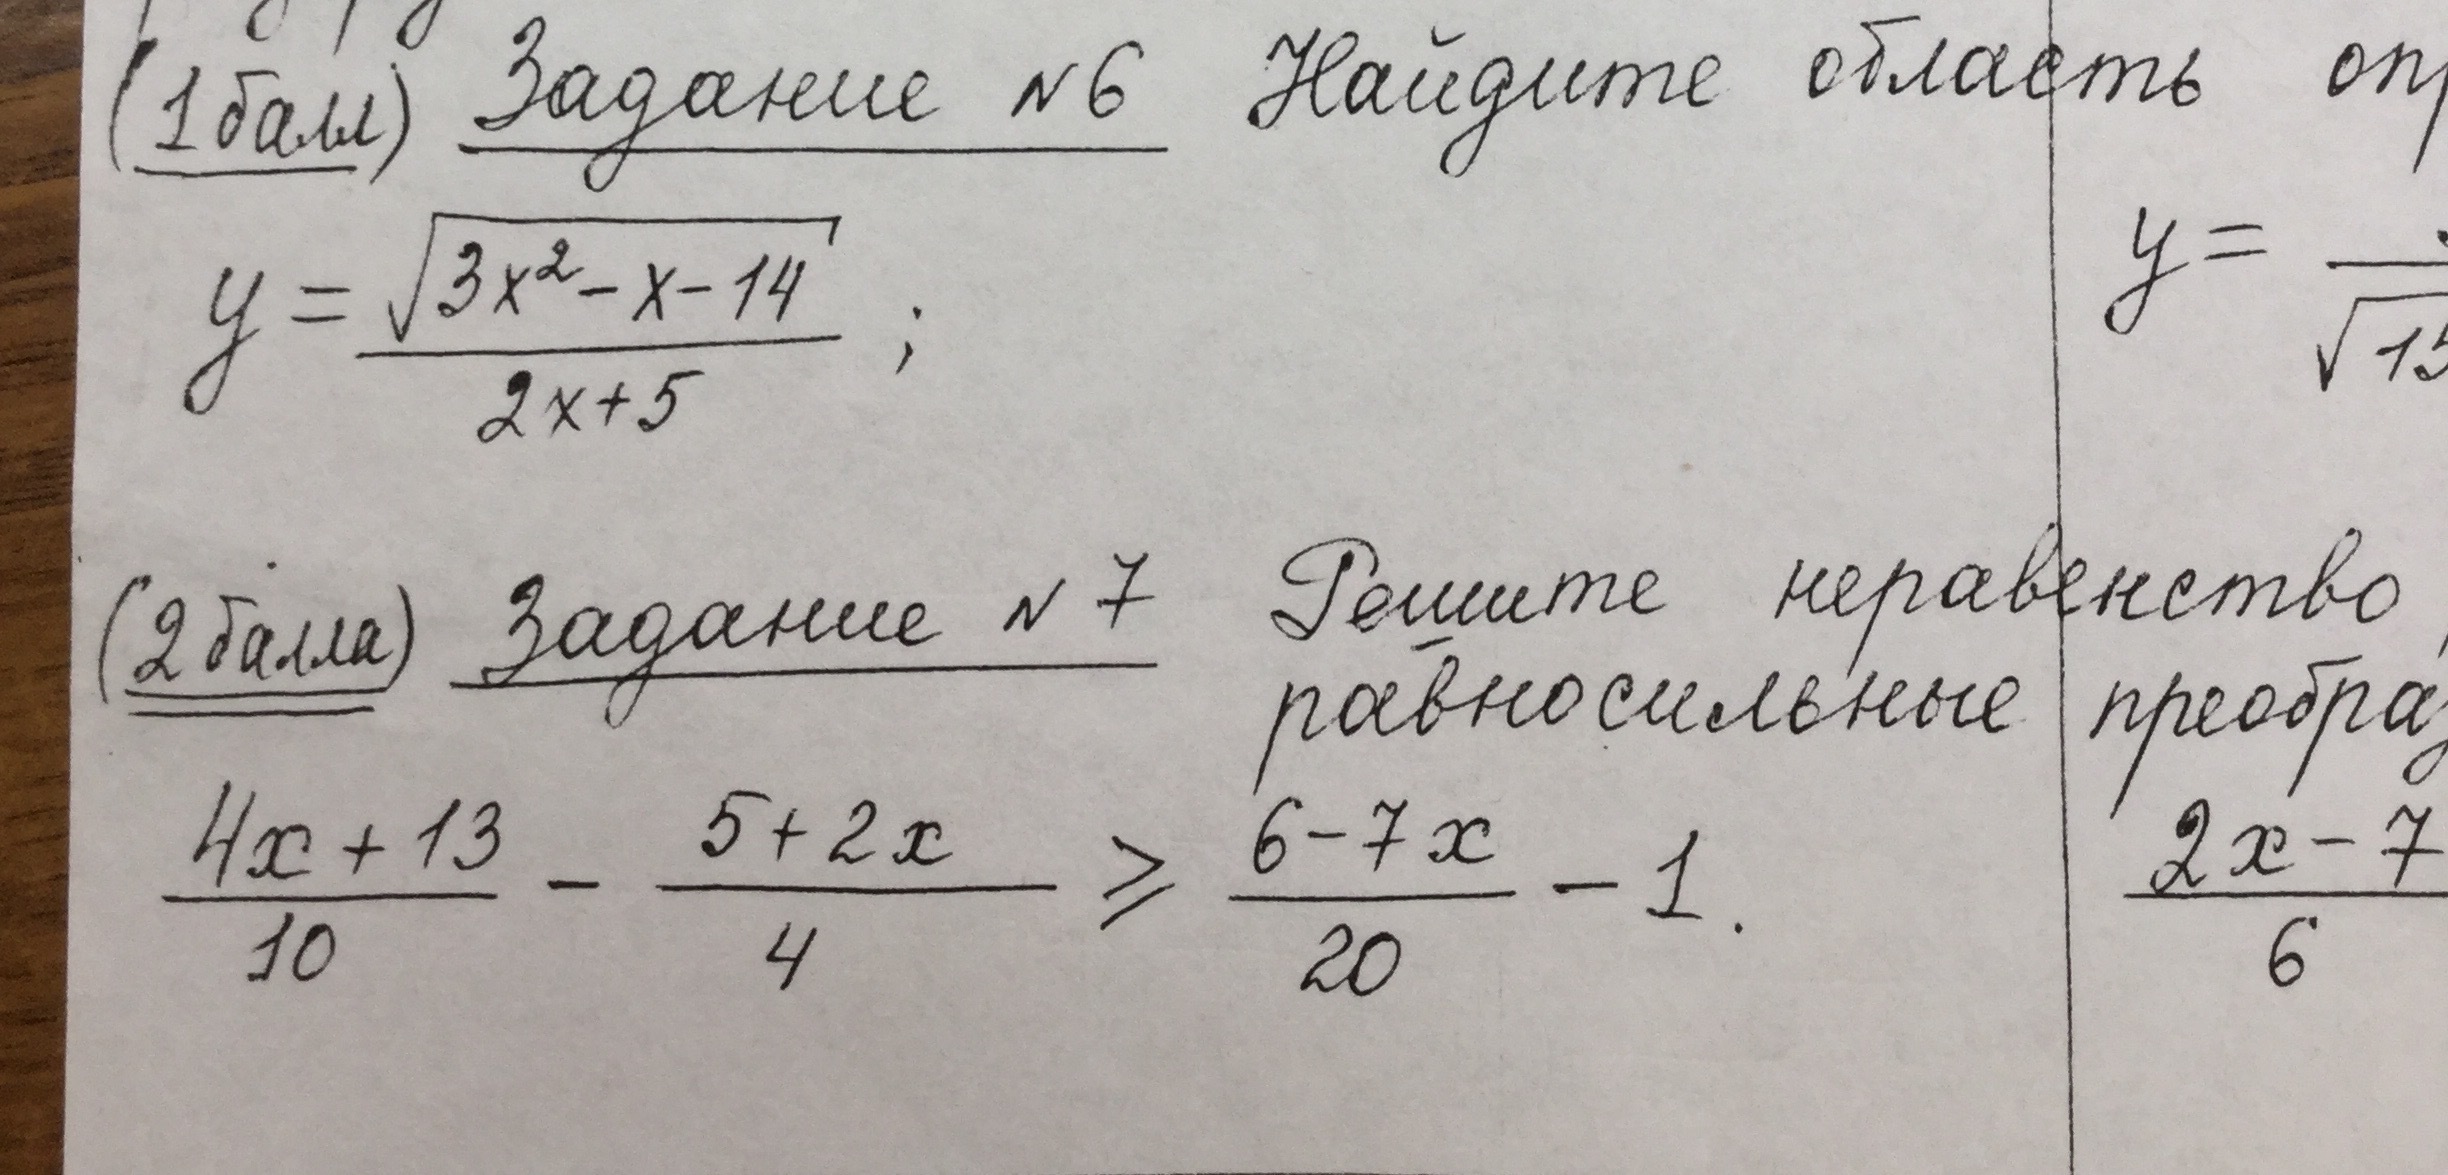 (1 балл) Задание №6 Найдите область опр
y = √(3x² - x - 14) / (2x + 5) ;
y = / √15
(2 балла) Задание №7 Решите неравенство,
равносильные преобраз
(4x + 13)/10 - (5 + 2x)/4 ⩾ (6 - 7x)/20 - 1.
2x - 7 / 6